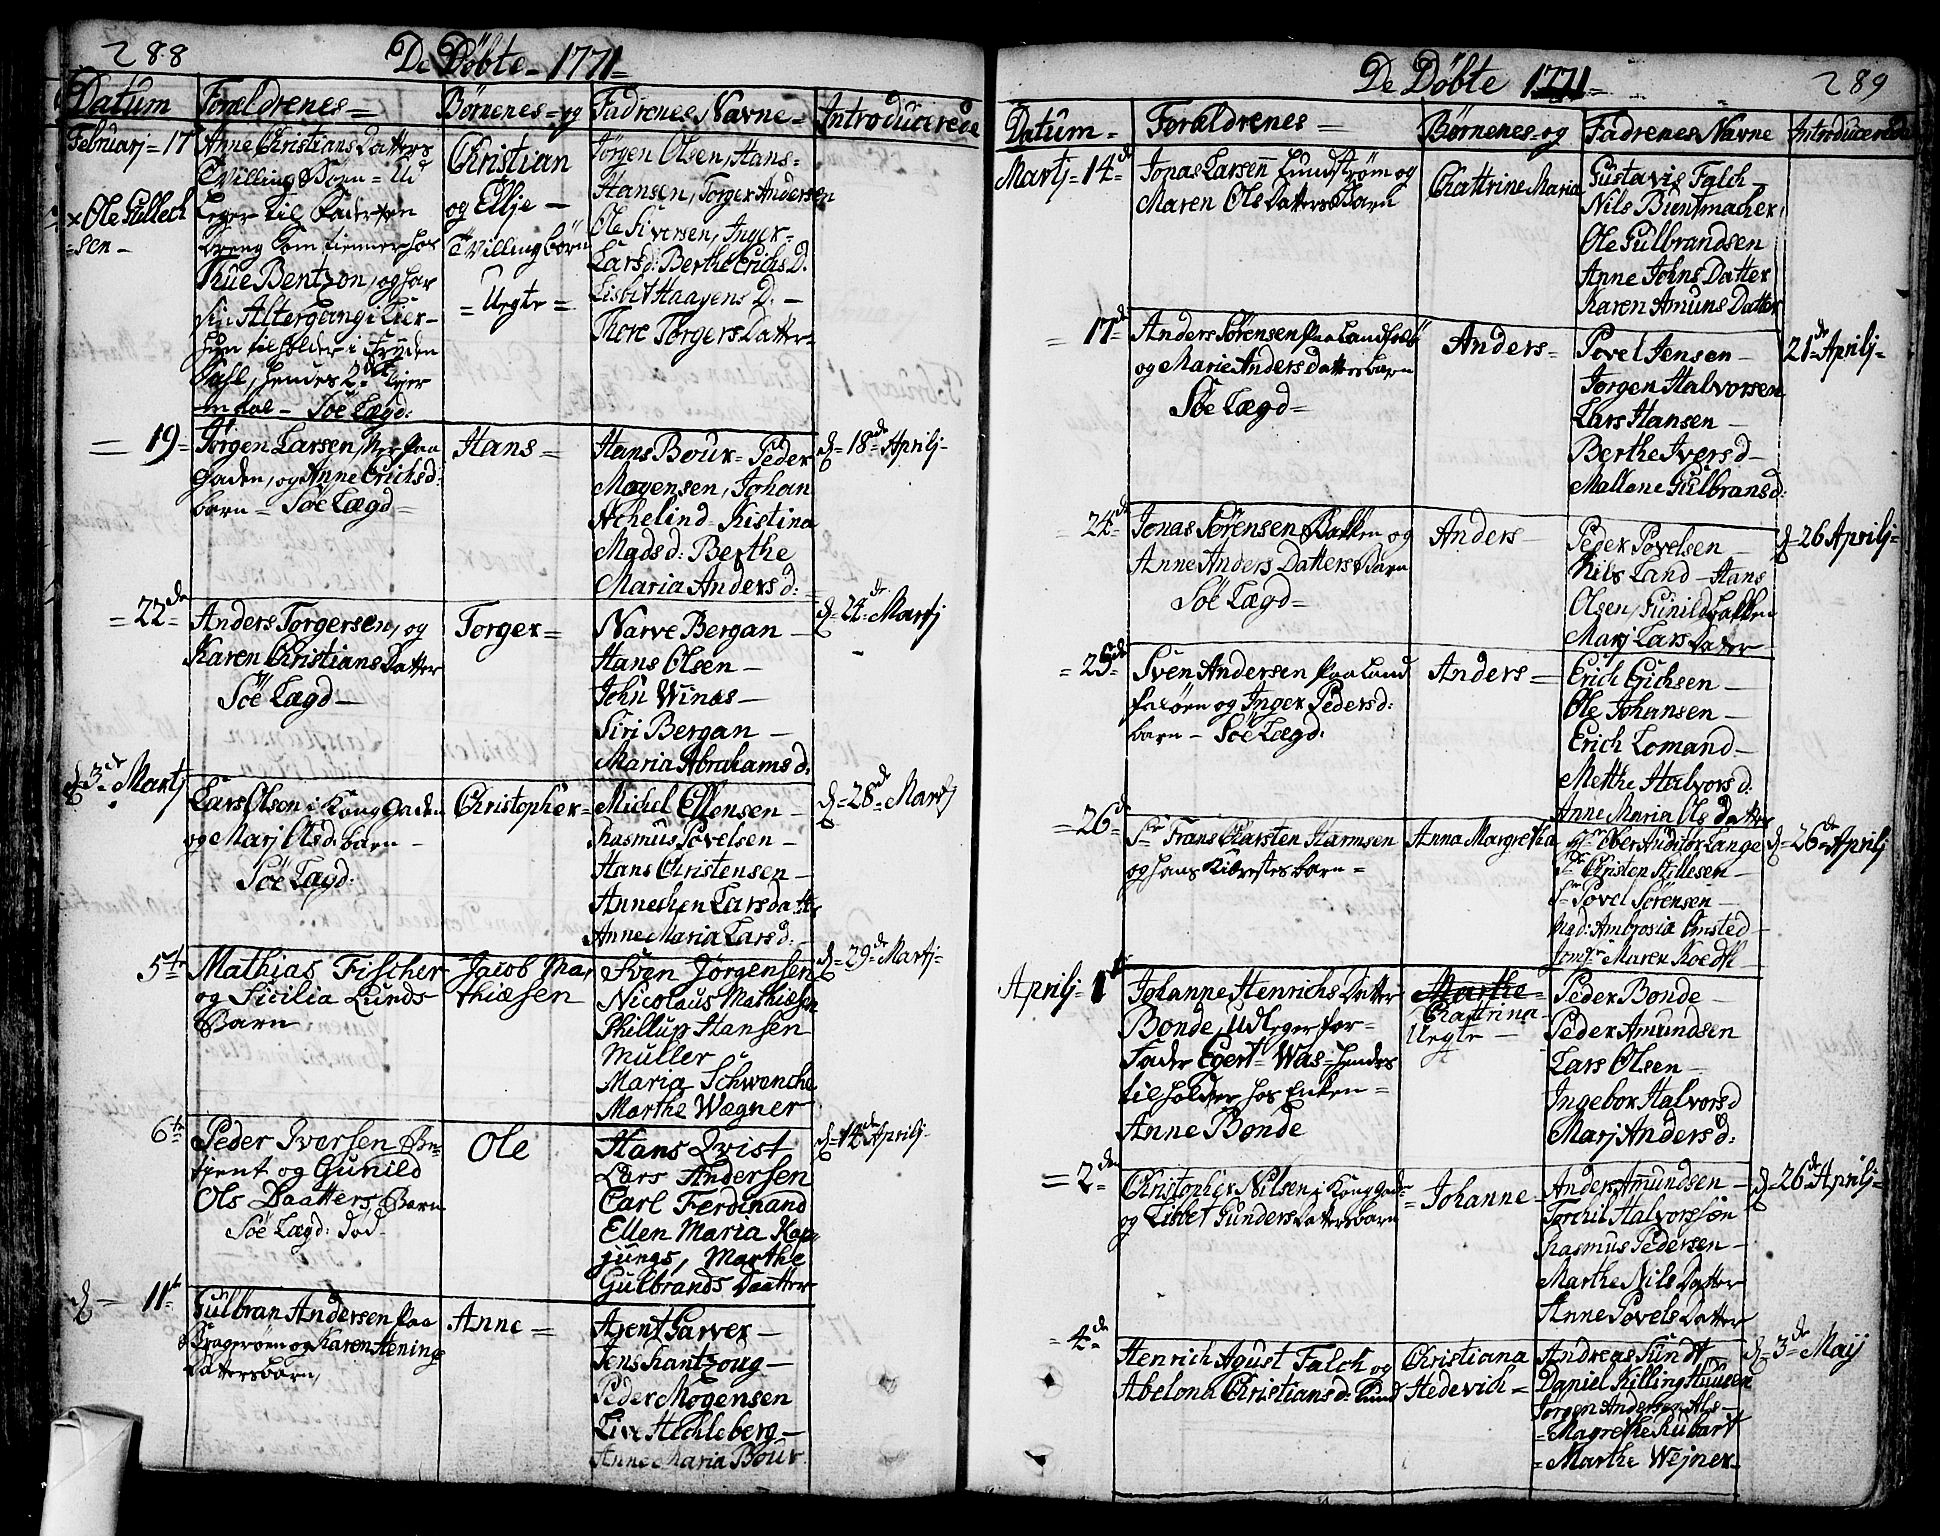 288
De Döbte 1771
Datum Forældrenes Börnenes og Fadrenes Navne Introducerede
Februarj 17
x Ole Gullech
=sen
Anne Christians Datters
Tvilling Börn = Ud
Leger til Fader, en
dreng som tienner hos
Thue Bentzon, og har
sin Altergang i Lier
hun tilholder i Fruden
dahl, hendes 2det Lejer
maal Söe Lægd:
Christian
og Ellje
Tvillingbörn
= Uegte =
Jörgen Olsen, Hans
Hansen, Torger Andersen
Ole Siversen, Inger
Lars d: Berthe Erichs D.
Lisbet Haagens D.
Thore Torgers Datter
= 19 =
Jörgen Larsen,
Gaden, og Anne Erichs d:
barn = Söe Lægd =
Hans =
Hans Bour = Peder
Mogensen, Johan
Achelind = Kistina
Mads d: Berthe
Maria Anders d:
d = 18de Aprilj
= 22de
Anders Torgersen, og
Karen Christians Datter
Söe Lægd
Torger =
Narve Bergan
Hans Olsen
John Winæs
Siri Bergan
Maria Abrahams d:
d = 24de Martj
d 3de Martj
Lars Olsen i Kong Gaden
og Marj Ols d: barn
Söe Lægd:
Christopher
Michel Ellensen
Rasmus Povelsen
Hans Christensen
Annechen Lars datter
Anne Maria Lars d:
d = 28de Martj
5te
Mathias Fischer
og Sicilia Lunds
Barn
Jacob Ma,
thiæsen
Sven Jörgensen
Nicolaus Mathiæsen
Phillup Hansen
Müller
Maria Schwencke
Marthe Wægner
d 29de Martj
6te
Peder Iversen Be
tjent og Gunild
Ols Daatters Barn
Söe Lægd: död
Ole
Hans Qvist
Lars Andersen
Carl Ferdinand
Ellen Maria Kop
jungs, Marthe
Gulbrands Daatter
d = 12de Aprilj
d = 11te
Gulbran Andersen Paa
Bragerøen og Karen Henings
Datters barn
Anne =
Arent Garver
Jens hantzoug
Peder Mogensen
Live Hechleberg
Anne Maria Bour
De Döbte 1771 = 289
Datum = Forældrenes = Börnenes = og Fadrenes Navne Introducerede
Martj = 14de
Jonas Larsen Lundström og
Maren Ols Datters Barn
Chattrine Maria
Gustavis Falch
Nils Buntmacher
Ole Gulbrandsen
Anne Johns Datter
Karen Amuns Datter
= 17de
Anders Sörensen
og Marie Anders Datters barn
Söe Lægd =
Anders =
Povel Jensen
Jørgen Halvorsen
Lars Hansen
Berthe Ivers d
Mallene Gulbrans d:
21de Aprilj =
24de
Jonas Sörensen Bakken og
Anne Anders Datters Barn
Söe Lægd =
Anders
Peder Povelsen
Nils Land = Hans
Olsen, Gunild bakken
Marj Lars Datter
d = 26 Aprilj =
= 25de
Sven Andersen Paa Land
og Inger Peders d:
barn = Söe Lægd:
Anders =
Erich Erichsen
Ole Johansen
Erich Lomand
Methe Halvors d:
Anne Maria Ols Datter
= 26de
Sr Frans Karsten Harmsen
og hans Kierestes barn =
Anna Margretha
Hr Ober Auditör Lange
Sr Christen Stillesen
Sr Povel Sörensen
Mad: Ambrosia Omsted
Jomfr Maren Koedt
d = 26de Aprilj
Aprilj = 1te
Johanne Henrichs Datter
Bonde, udleger for
Fader Egert Was = hendes
tilholder hos Enken =
Anne Bonde
Marthe =
Chattrina
Uegte
Peder Bonde
Peder Amundsen
Lars Olsen
Ingebor Halvors d
Marj Anders d:
= 2den
Christopher Nilsen i Kong Gade
og Lisbet Gunders Datters barn
= Johanne
Anders Amundsen
Torchil Halvorssön
Rasmus Pedersen
Marthe Nils Datter
Anne Povels Datter
d = 26de Aprilj =
= 4de
Henrich Agust Falch og
Abelona Christians d: Lund
Christiana
Hedevich =
Andreas Sundt
Daniel Killing Huusen
Jörgen Andersen Als
= Magrethe Rubart
= Marthe Wejner
d = 3de Maij